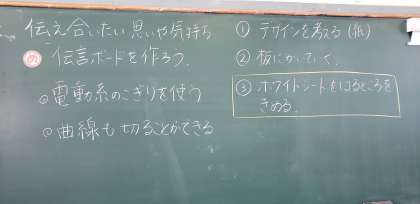 伝え合いたい思いや気持ち
め 伝言ボードを作ろう.
◎電動糸のこぎりを使う
◎曲線も切ることができる
① デザインを考える(紙)
② 板にかいていく.
③ ホワイトシートをはるところを
きめる.